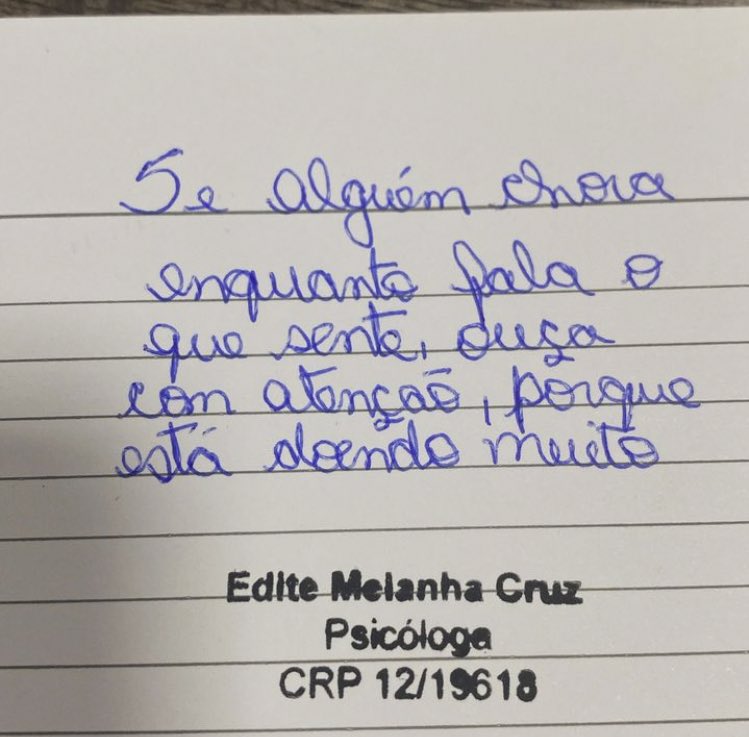 Se alguém chora
enquanto fala o
que sente, ouça
com atenção, porque
está doendo muito
Edite Melanha Cruz
Psicóloga
CRP 12/19618